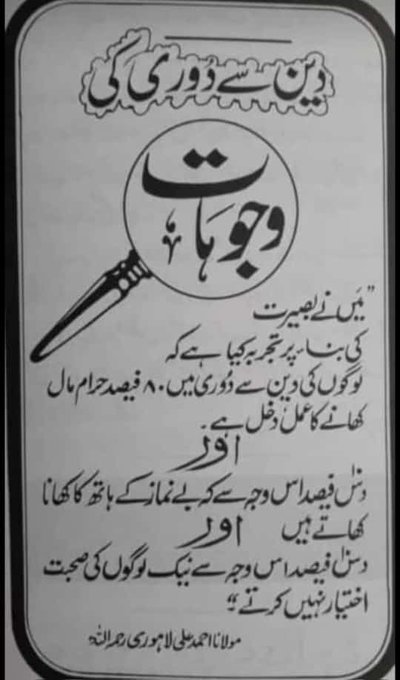 دین سے دُوری کی
وجوہات
”میں نے بصیرت
کی بناء پر تجربہ کیا ہے کہ
لوگوں کی دین سے دُوری میں ۸۰ فیصد حرام مال
کھانے کا عمل دخل ہے۔
اور
دس فیصد اس وجہ سے کہ بے نماز کے ہاتھ کا کھانا
کھاتے ہیں اور
دس فیصد اس وجہ سے نیک لوگوں کی صحبت
اختیار نہیں کرتے“
مولانا احمد علی لاہوری رحمہ اللہ